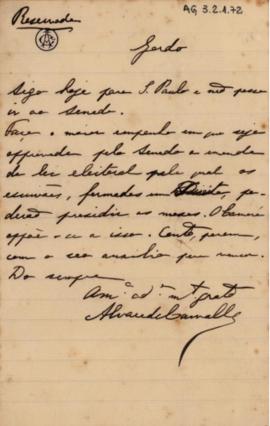 AG 3.2.1.72
Reservada
Gordo
Sigo hoje para S. Paulo e não posso
ir ao senado.
Faço o maior empenho em que seja
approvada pelo Senado a emenda
da lei eleitoral pela qual os
escrivães, formados em Direito, po-
derão presidir as mesas. O
oppõe-se a isso. Conto, porem,
com o seu auxilio para vencer.
Do sempre
Am.º m.to grato
Alvaro de Carvalho